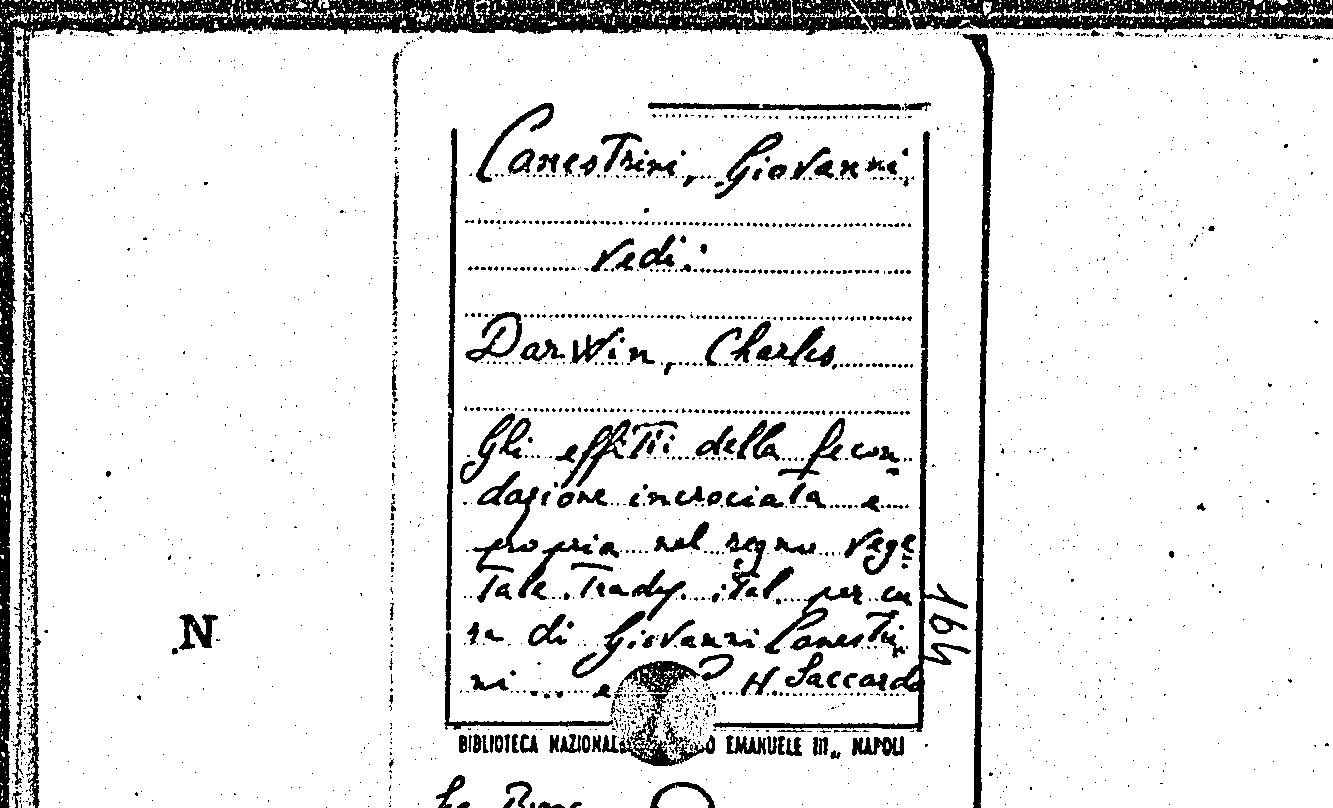 Canestrini, Giovanni,
vedi:
Darwin, Charles
Gli effetti della fecon-
dazione incrociata e
propria nel regno vege-
tale. Traduz. ital. per cu
ra di Giovanni Canestri-
ni ... e P. H. Saccardo
164
N
BIBLIOTECA NAZIONALE EMANUELE III„ NAPOLI